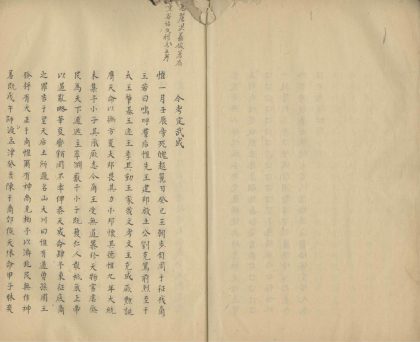 今考定武成
惟一月壬辰旁死魄越翼日癸巳王朝步自周于征伐商
王若曰嗚呼羣后惟先王建邦啟土公劉克篤前烈至于
大王肇基王迹王季其勤王家我文考文王克成厥勲誕
膺天命以撫方夏大邦畏其力小邦懷其德惟九年大統
未集予小子其承厥志今商王受無道暴殄天物害虐烝
民為天下逋逃主萃淵藪予小子既獲仁人敢祗承上帝
以遏亂略華夏蠻貊罔不率俾恭天成命肆予東征底商
之罪告于皇天后土所過名山大川曰惟有道曾孫周王
發將有大正于商惟爾有神尚克相予以濟兆民無作神
羞既戊午師渡孟津癸亥陳于商郊俟天休命甲子昧爽